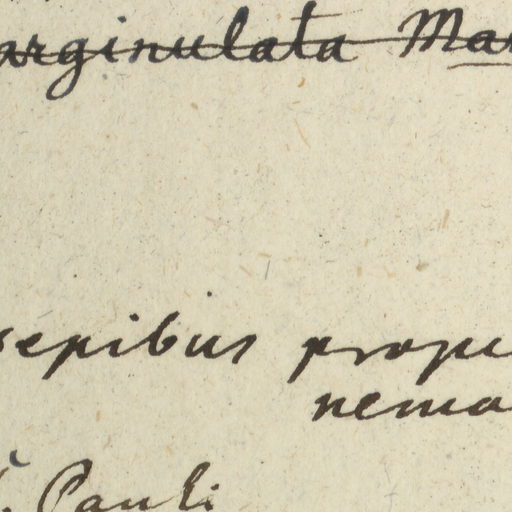 arginulata Mar
sepibus prope
nemo
Pauli